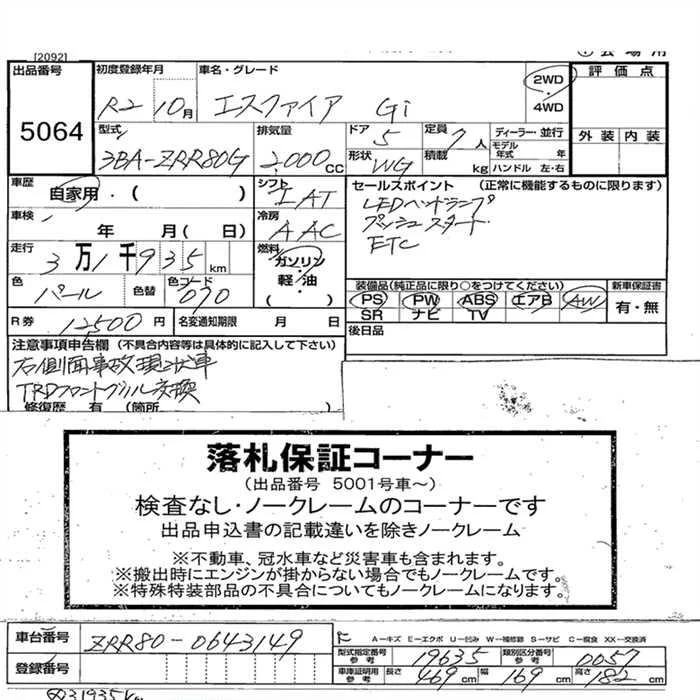 [2092]
出品番号 5064
初度登録年月 R2 10月
車名・グレード エスクァイア Gi
2WD・4WD
評価点
外装 内装
型式 3BA-ZRR80G
排気量 2,000 CC
ドア 5
定員 7人
ディーラー・並行
モデル年式 年
形状 WG
積載 kg
ハンドル 左・右
車歴 自家用・( )
シフト IAT
セールスポイント (正常に機能するものに限ります)
LEDヘッドランプ
プッシュスタート
ETC
車検 年 月(日)
冷房 AAC
走行 3万1千935km
燃料 ガソリン・軽油・( )
色 パール
色替
色コード 070
装備品(純正品に限り○をつけてください)
PS PW ABS エアB AW
SR ナビ TV
新車保証書 有・無
R券 12500円
名変通知期限 月 日
後日品
注意事項申告欄 (不具合内容等は具体的に記入して下さい)
右側面事故現状車
TRDフロントグリル交換
修復歴 有 (箇所
落札保証コーナー
(出品番号 5001号車~)
検査なし・ノークレームのコーナーです
出品申込書の記載違いを除きノークレーム
※不動車、冠水車など災害車も含まれます。
※搬出時にエンジンが掛からない場合でもノークレームです。
※特殊特装部品の不具合についてもノークレームになります。
車台番号 ZRR80-0643149
A-キズ E-エクボ U-凹み W-補修跡 S-サビ C-腐食 XX-交換済
型式指定番号 参考 19635
類別区分番号 参考 0057
登録番号
車庫証明用 参考 長さ 469cm 幅 169cm 高さ 182cm
31935km